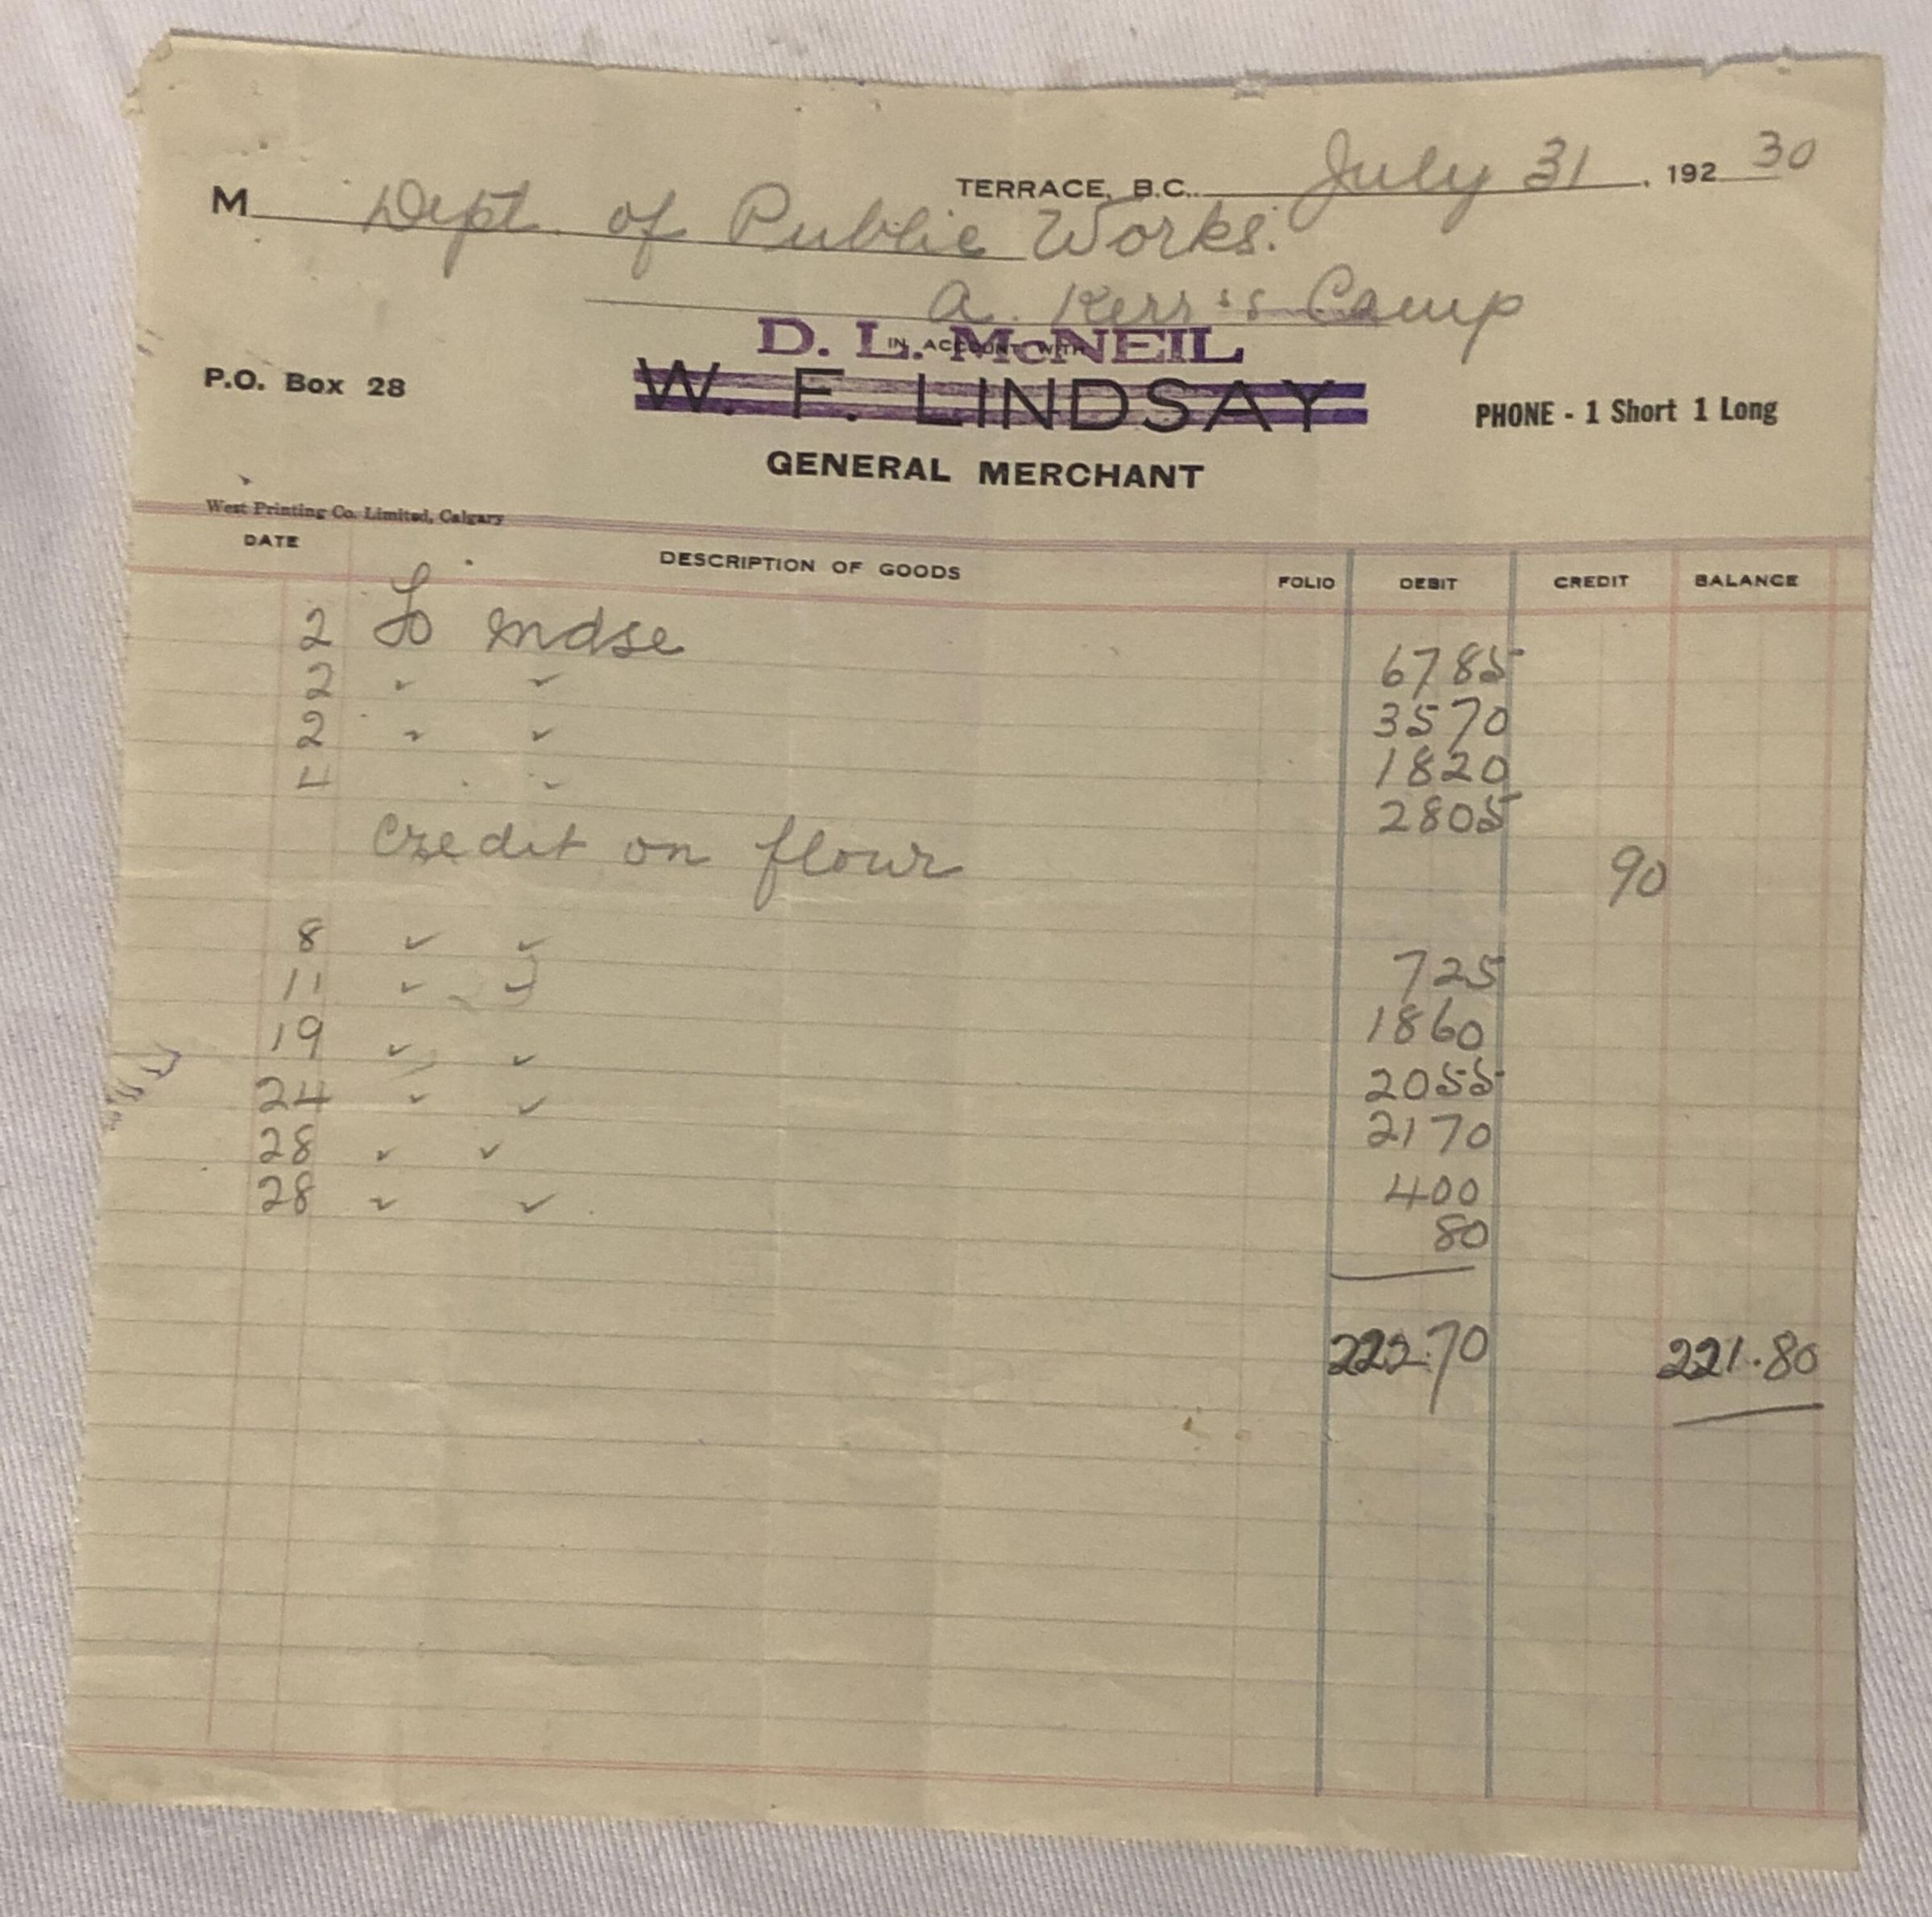 TERRACE, B.C. July 31, 192 30
M Dept. of Public Works.
A. Kerr's Camp
IN ACCOUNT WITH
D. L. McNEIL
W. F. LINDSAY
P.O. Box 28
PHONE - 1 Short 1 Long
GENERAL MERCHANT
West Printing Co. Limited, Calgary
DATE DESCRIPTION OF GOODS FOLIO DEBIT CREDIT BALANCE
2 To mdse 67 85
2 " " 35 70
2 " " 18 20
4 " " 28 05
Credit on flour 90
8 " " 7 25
11 " " 18 60
19 " " 20 55
24 " " 21 70
28 " " 4 00
28 " " 80
222.70 221.80